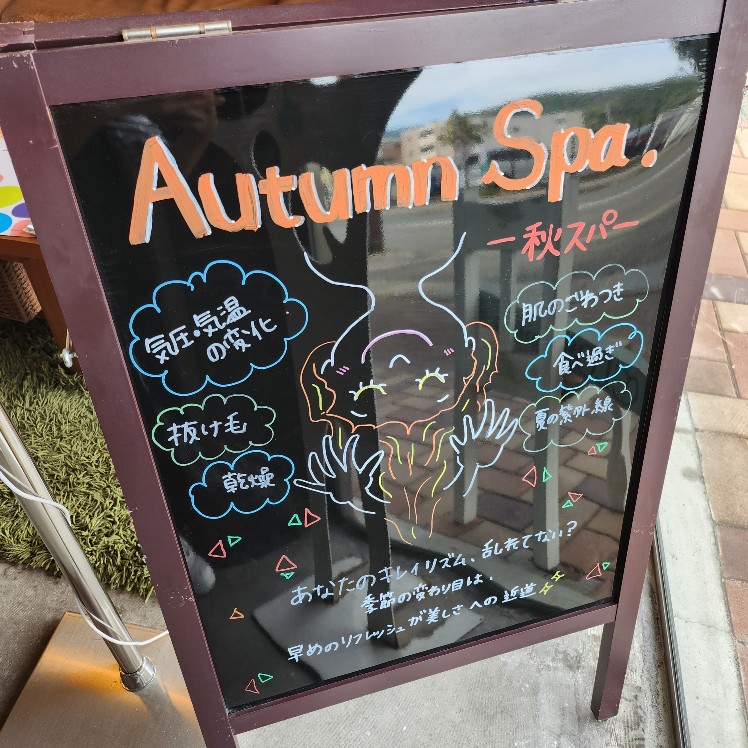 Autumn Spa.
ー秋スパー
気圧・気温
の変化
抜け毛
乾燥
肌のごわつき
食べ過ぎ
夏の紫外線
あなたのキレイリズム、乱れてない?
季節の変わり目は、
早めのリフレッシュが美しさへの近道